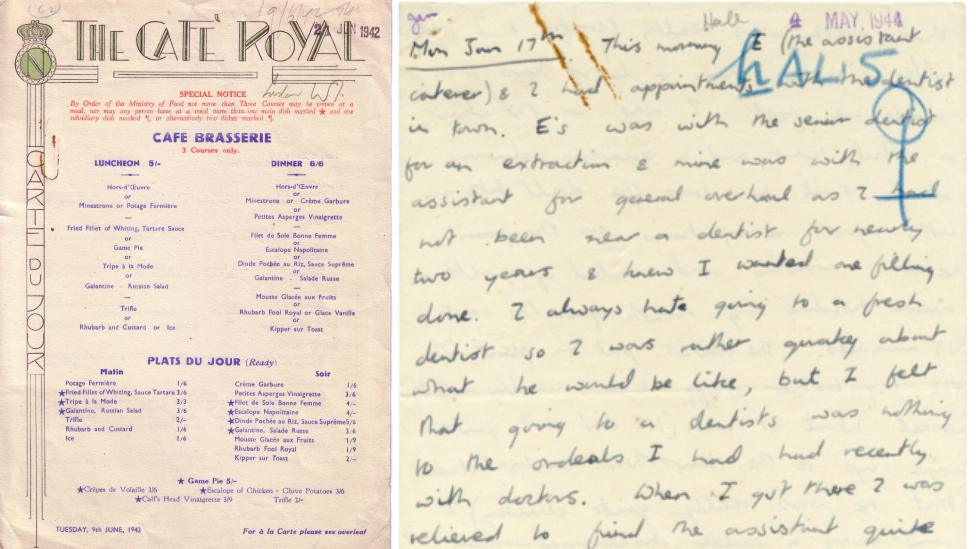 (C2)
19/5/42
THE CAFÉ ROYAL
21 JUN 1942
London W.1.
N
CARTE DU JOUR
SPECIAL NOTICE
By Order of the Ministry of Food not more than Three Courses may be served at a
meal, nor may any person have at a meal more than one main dish marked ★ and one
subsidiary dish marked ¶, or alternatively two dishes marked ¶.
CAFE BRASSERIE
3 Courses only.
LUNCHEON 5/-
Hors-d'Œuvre
or
Minestrone or Potage Fermière
Fried Fillet of Whiting, Tartare Sauce
or
Game Pie
or
Tripe à la Mode
or
Galantine - Russian Salad
Trifle
or
Rhubarb and Custard or Ice
DINNER 6/6
Hors-d'Œuvre
or
Minestrone or Crème Garbure
or
Petites Asperges Vinaigrette
Filet de Sole Bonne Femme
or
Escalope Napolitaine
or
Dinde Pochée au Riz, Sauce Suprême
or
Galantine - Salade Russe
Mousse Glacée aux Fruits
or
Rhubarb Fool Royal or Glace Vanille
or
Kipper sur Toast
PLATS DU JOUR (Ready)
Matin
Potage Fermière 1/6
★Fried Fillet of Whiting, Sauce Tartare 3/6
★Tripe à la Mode 3/3
★Galantine, Russian Salad 3/6
Trifle 2/-
Rhubarb and Custard 1/6
Ice 1/6
Soir
Crème Garbure 1/6
Petites Asperges Vinaigrette 3/6
★Filet de Sole Bonne Femme 4/-
★Escalope Napolitaine 4/-
★Dinde Pochée au Riz, Sauce Suprême 5/6
★Galantine, Salade Russe 3/6
Mousse Glacée aux Fruits 1/9
Rhubarb Fool Royal 1/9
Kipper sur Toast 2/-
★ Game Pie 5/-
★Crêpes de Volaille 3/6 ★Escalope of Chicken - Chive Potatoes 3/6
★Calf's Head Vinaigrette 3/9 Trifle 2/-
TUESDAY, 9th JUNE, 1942 For à la Carte please see overleaf
gen Hall 4 MAY 1944
HAL15
Mon Jan 17th This morning E (the assistant
caterer) & I had appointments with the dentist
in town. E's was with the senior dentist
for an extraction & mine was with the
assistant for general overhaul as I had
not been near a dentist for nearly
two years & knew I wanted one filling
done. I always hate going to a fresh
dentist so I was rather quakey about
what he would be like, but I felt
that going to a dentists was nothing
to the ordeals I had had recently
with doctors. When I got there I was
relieved to find the assistant quite